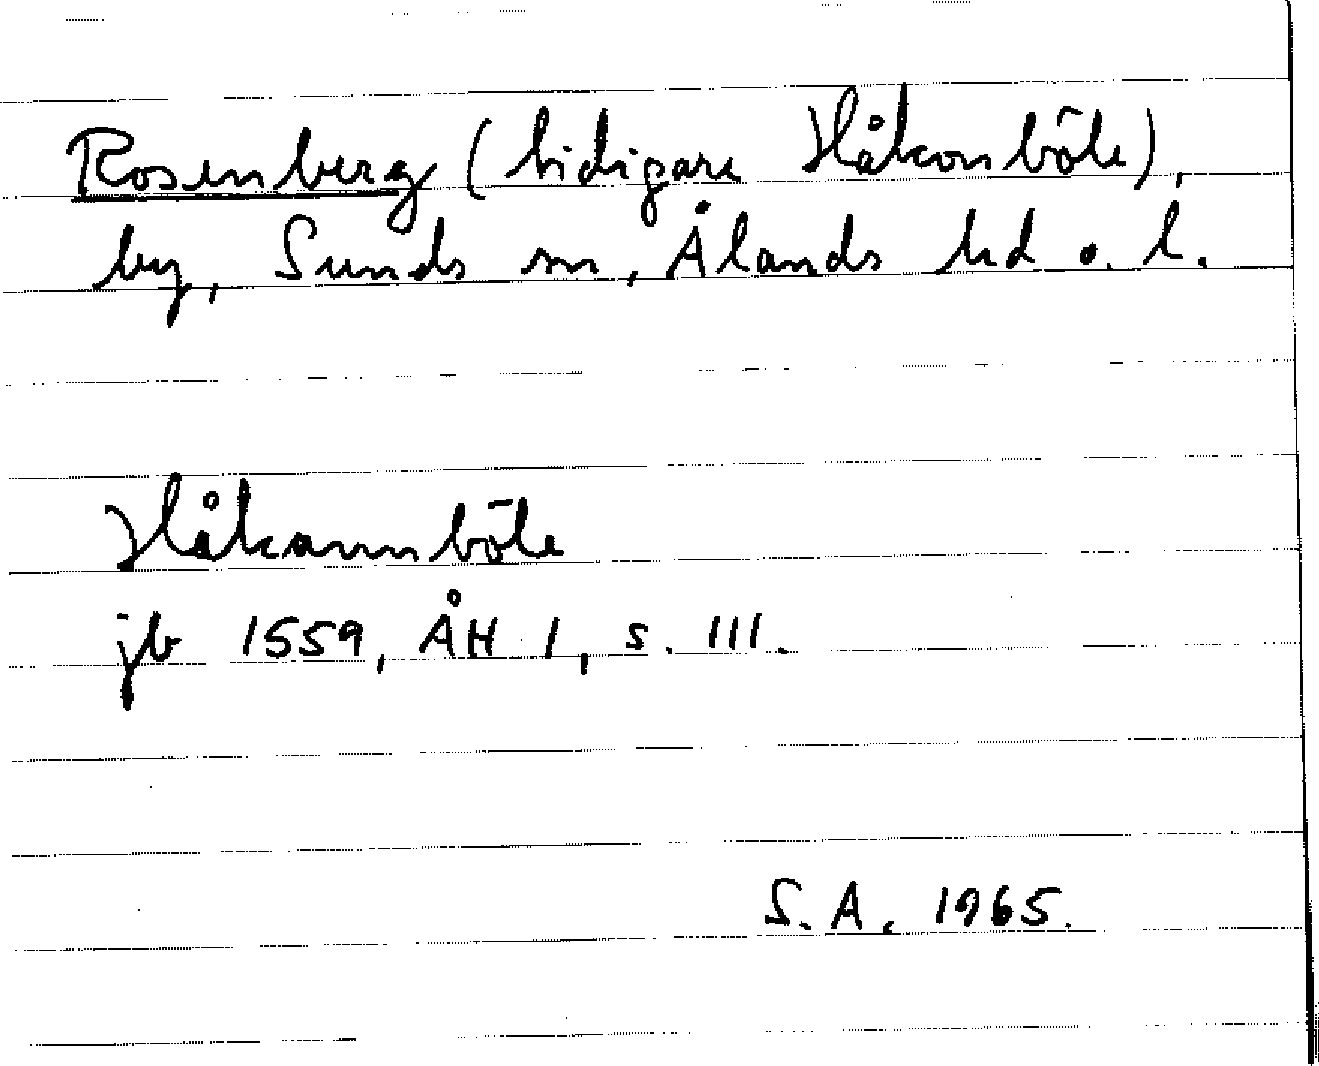 Rosenberg (tidigare Håkonböle),
by, Sunds sn, Ålands hd o. l.
Håkannböle
jb 1559, ÅH 1, s. 111.
S. A. 1965.